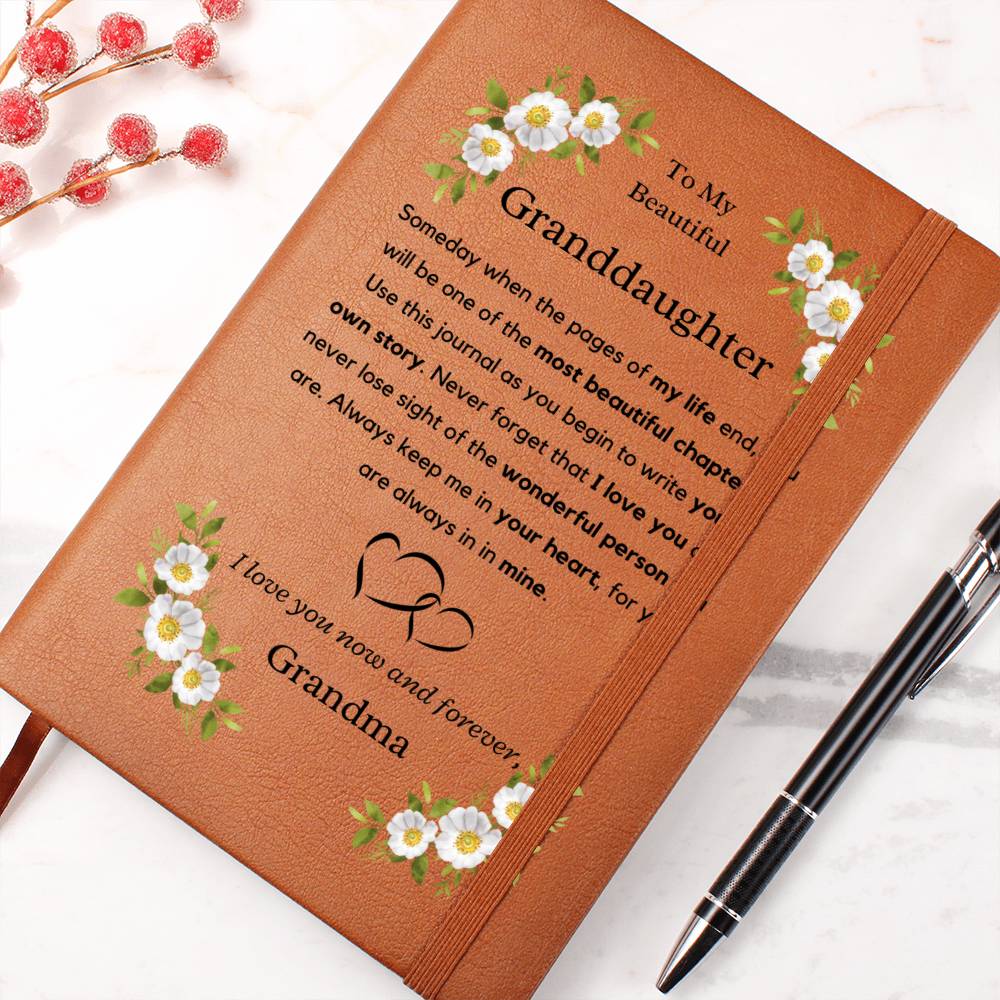 To My
Beautiful
Granddaughter
Someday when the pages of my life end,
will be one of the most beautiful chapte
Use this journal as you begin to write
own story. Never forget that I love you
never lose sight of the wonderful person
are. Always keep me in your heart, for
are always in in mine.
I love you now and forever,
Grandma